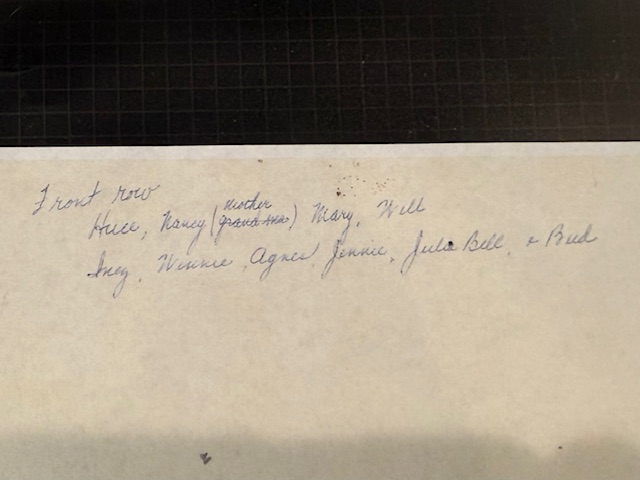 Front row
Huce, Nancy (mother grandma) Mary, Will
Inez, Winnie, Agnes, Jennie, Jula Bell, & Bud